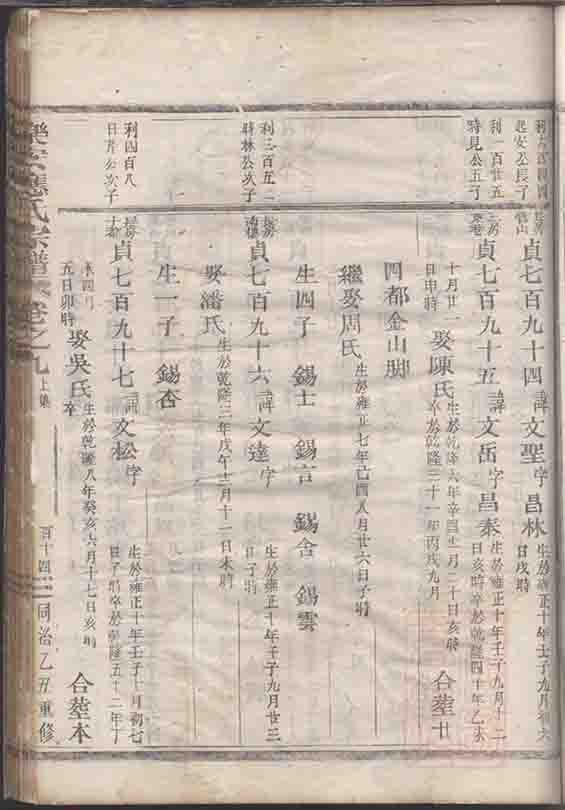 利
起安公長子
貞七百九十四 諱文聖字昌林
生於雍正十年壬子九月初六
日戌時
利一百廿五
時見公五子
貞七百九十五 諱文岳字昌泰
生於雍正十年壬子九月十二
日亥時卒於乾隆四十年乙未
十月廿一
日申時
娶陳氏
生於乾隆六年辛酉 月二十日亥時
卒於乾隆三十一年丙戌九月
合塟廿
四都金山脚
繼娶周氏 生於雍正七年己酉八月廿六日子時
生四子 錫士 錫言 錫舍 錫雲
利三百五二
時林公次子
貞七百九十六 諱文達字
生於雍正十年壬子九月廿三
日子時
娶潘氏 生於乾隆三年戊午十二月十二日未時
生一子 錫杏
利四百八
日芹公次子
貞七百九十七 諱文松字
生於雍正十年壬子十月初七
日子時卒於乾隆五十二年丁
未四月
五日卯時
娶吳氏
生於乾隆八年癸亥六月十七日亥時
卒
合塟本
應氏宗譜 卷之九 上集 百十四 同治乙丑重修